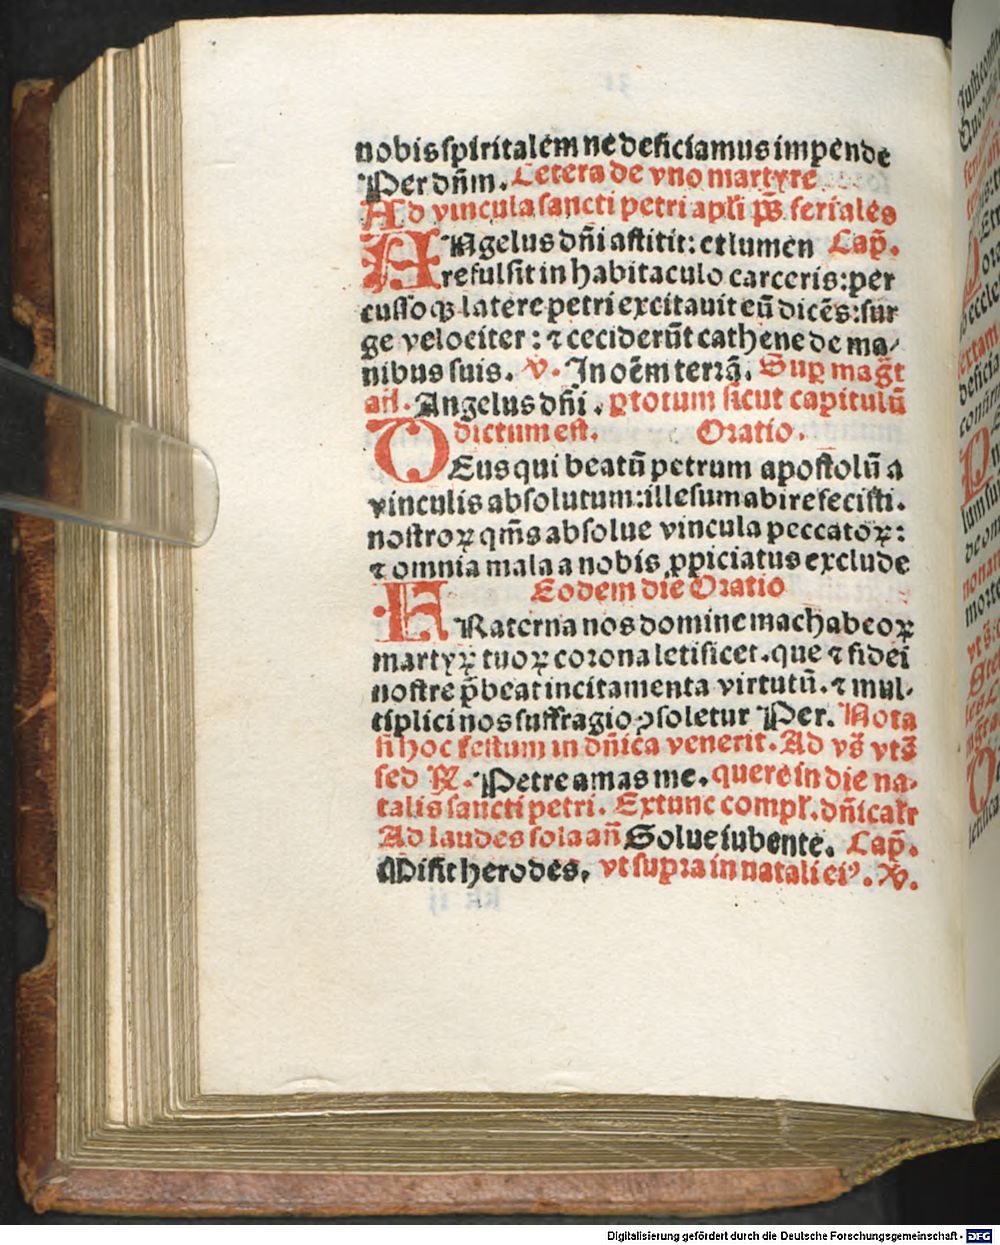 nobis spiritalem ne deficiamus impende
Per dñm. Cetera de vno martyre
Ad vincula sancti petri apłi p̄s. feriales
ANgelus dñi astitit: et lumen Cap̄.
refulsit in habitaculo carceris: per
cussoqꝫ latere petri excitauit eū dicēs: sur
ge velociter: ⁊ ceciderūt cathene de ma⸗
nibus suis. V. In oēm terrā. Sup mag̃t
añ. Angelus dñi. ꝓ totum sicut capitulū
dictum est. Oratio.
DEus qui beatū petrum apostolū a
vinculis absolutum: illesum abire fecisti.
nostroꝝ qm̃s absolue vincula peccatoꝝ:
⁊ omnia mala a nobis ꝓpiciatus exclude
Eodem die Oratio
FRaterna nos domine machabeoꝝ
martyꝝ tuoꝝ corona letificet. que ⁊ fidei
nostre p̄beat incitamenta virtutū. ⁊ mul⸗
tiplici nos suffragio ꝯsoletur Per. Nota
si hoc festum in dñica venerit. Ad vs̄ vts̄
sed ℟. Petre amas me. quere in die na⸗
talis sancti petri. Ex tunc compł. dñicalr
Ad laudes sola añ Solue iubente. Cap̄.
Misit herodes. vt supra in natali eiꝰ. V.
kk ij
Digitalisierung gefördert durch die Deutsche Forschungsgemeinschaft - DFG